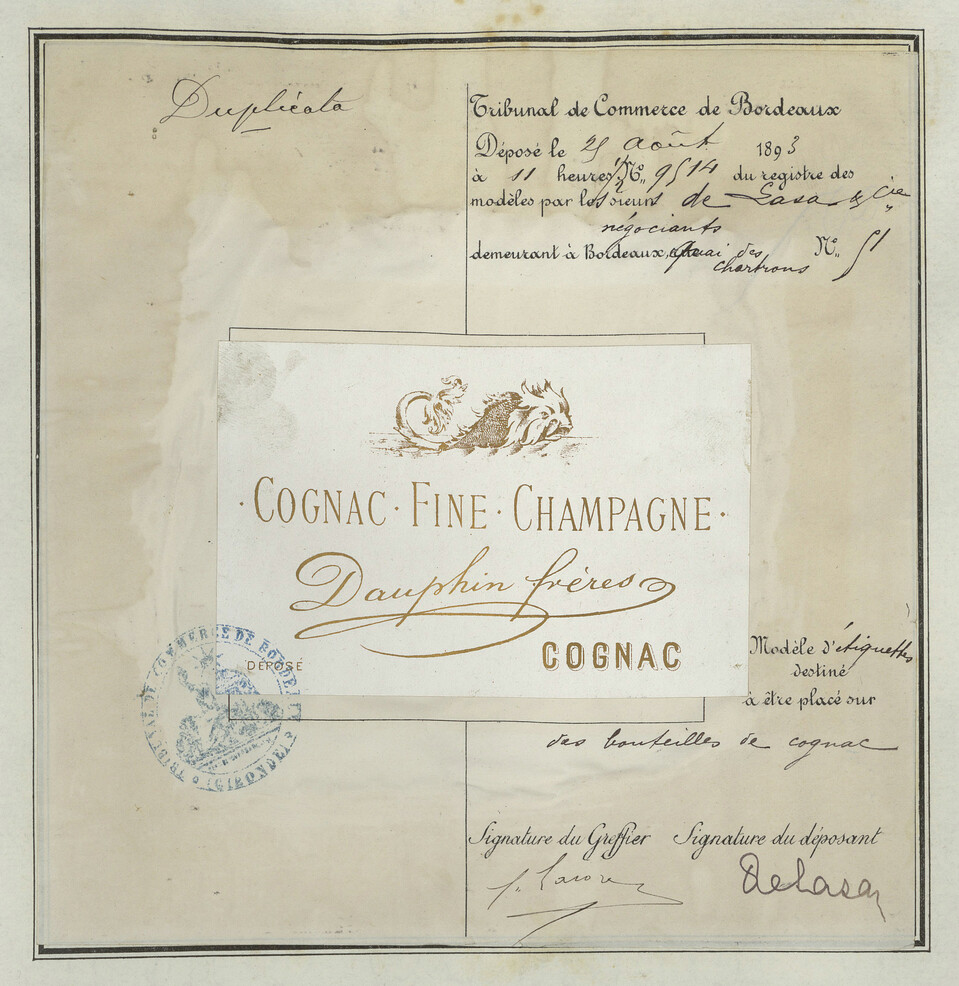 Duplicata
Tribunal de Commerce de Bordeaux
Déposé le 25 août 1893
à 11 heures 1/2 No 9514 du registre des
modèles par les sieurs de Lasa & Cie
négociants
demeurant à Bordeaux, quai des No 51
chartrons
· COGNAC · FINE · CHAMPAGNE ·
Dauphin frères
COGNAC
DÉPOSÉ
TRIBUNAL DE COMMERCE DE BORDEAUX
(GIRONDE)
Modèle d'étiquettes
destiné
à être placé sur
des bouteilles de cognac
Signature du Greffier Signature du déposant
DeLasa